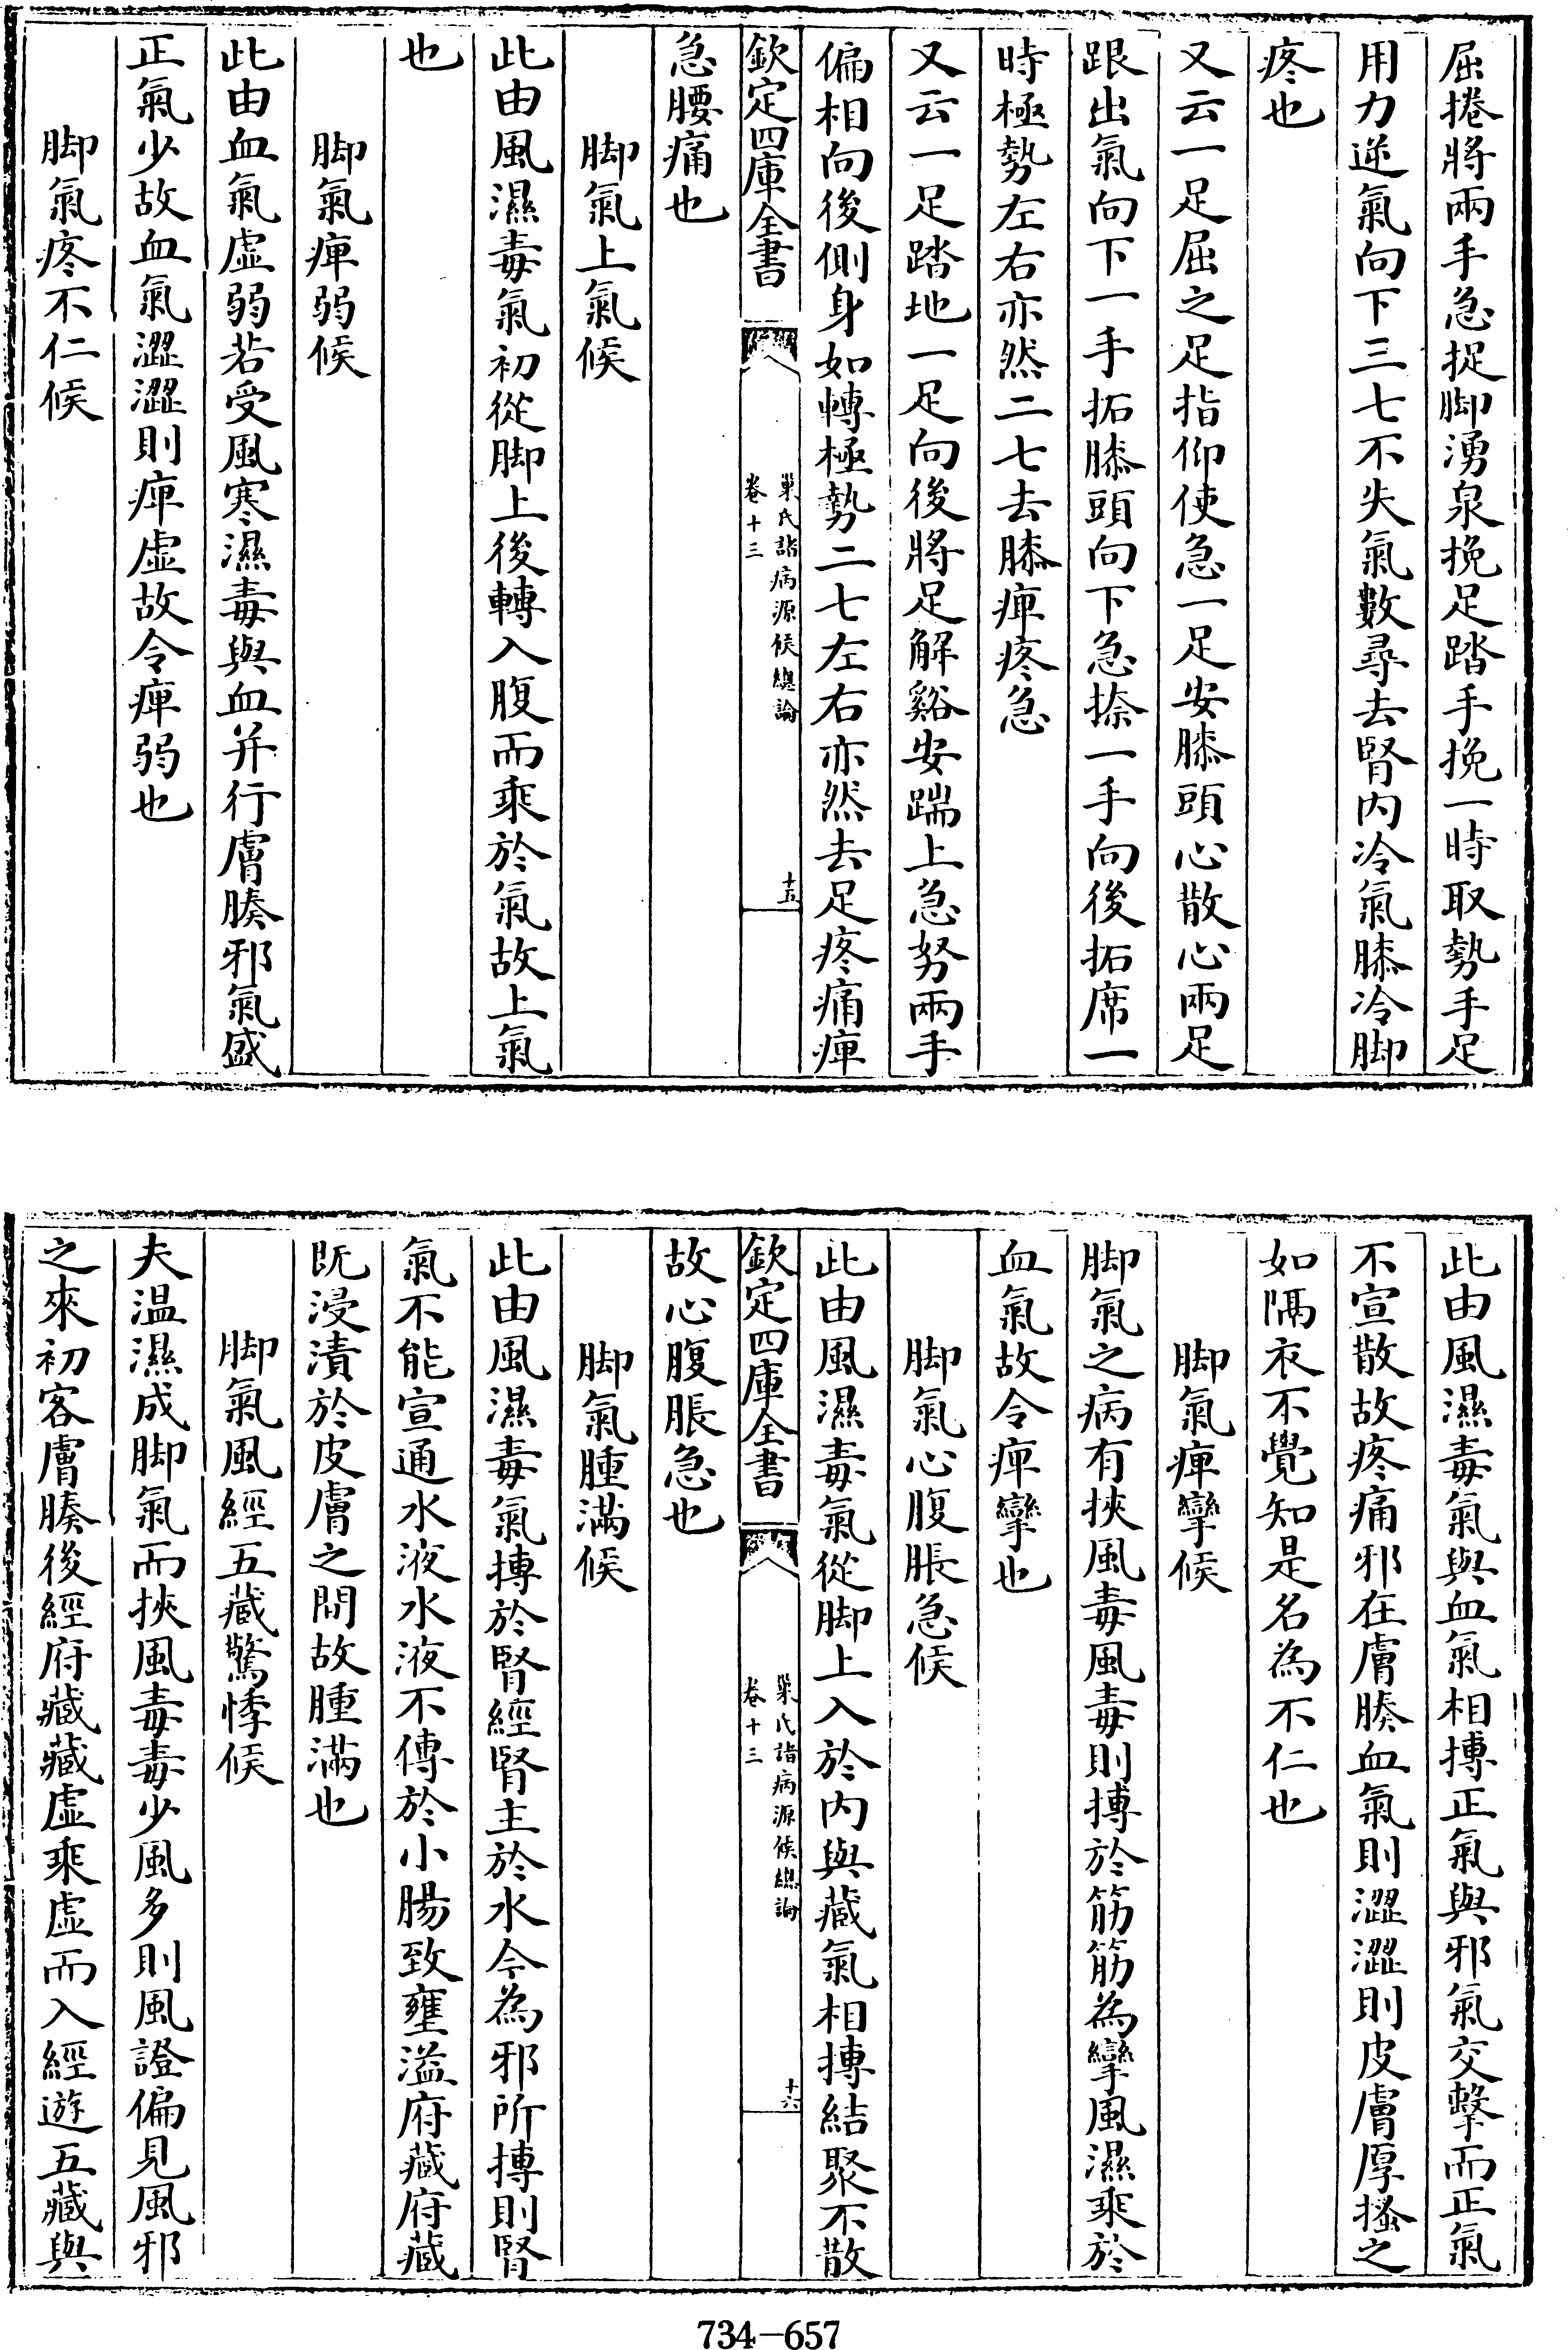 屈捲將兩手急捉脚湧泉挽足踏手挽一時取勢手足
用力逆氣向下三七不失氣數尋去腎内冷氣膝冷脚
疼也
又云一足屈之足指仰使急一足安膝頭心散心兩足
跟出氣向下一手拓膝頭向下急捺一手向後拓席一
時極勢左右亦然二七去膝痺疼急
又云一足踏地一足向後將足解谿安踹上急努兩手
偏相向後側身如轉極勢二七左右亦然去足疼痛痺
欽定四庫全書
巢氏諸病源候總論
卷十三
十五
急腰痛也
脚氣上氣候
此由風濕毒氣初從脚上後轉入腹而乘於氣故上氣
也
脚氣痺弱候
此由血氣虚弱若受風寒濕毒與血并行膚腠邪氣盛
正氣少故血氣澀澀則痺虚故令痺弱也
脚氣疼不仁候
此由風濕毒氣與血氣相搏正氣與邪氣交擊而正氣
不宣散故疼痛邪在膚腠血氣則澀澀則皮膚厚搔之
如隔衣不覺知是名為不仁也
脚氣痺攣候
脚氣之病有挾風毒風毒則搏於筋筋為攣風濕乘於
血氣故令痺攣也
脚氣心腹脹急候
此由風濕毒氣從脚上入於内與藏氣相搏結聚不散
欽定四庫全書
巢氏諸病源候總論
卷十三
十六
故心腹脹急也
脚氣腫滿候
此由風濕毒氣搏於腎經腎主於水今為邪所搏則腎
氣不能宣通水液水液不傳於小腸致壅溢府藏府藏
既浸漬於皮膚之間故腫滿也
脚氣風經五藏驚悸候
夫温濕成脚氣而挾風毒毒少風多則風證偏見風邪
之來初客膚腠後經府藏藏虚乘虚而入經遊五藏與
734-657